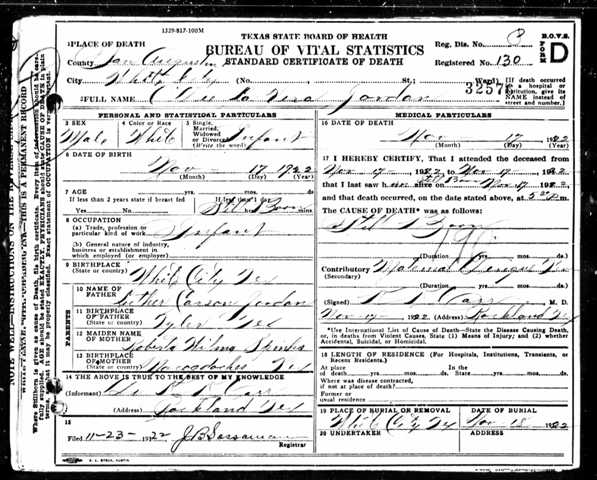 1329-817-100M
TEXAS STATE BOARD OF HEALTH
BUREAU OF VITAL STATISTICS
STANDARD CERTIFICATE OF DEATH
Reg. Dis. No. C
Registered No. 130
B.O.V.S.
FORM D
PLACE OF DEATH
County San Augustin
City White City (No. St.; Ward)
3257
[If death occurred in a hospital or institution, give its NAME instead of street and number.]
FULL NAME Jordan
PERSONAL AND STATISTICAL PARTICULARS
3 SEX Male
4 Color or Race White
5 Single, Married, Widowed or Divorced (Write the word) Infant
6 DATE OF BIRTH
Nov 17 1922
(Month) (Day) (Year)
7 AGE
If less than 2 years state if breast fed
Yes No
If less than 1 day
Still Born
hrs mins
8 OCCUPATION
(a) Trade, profession or particular kind of work Infant
(b) General nature of industry, business or establishment in which employed (or employer)
9 BIRTHPLACE
(State or country) White City Tex
PARENTS
10 NAME OF FATHER Luther Carson Jordan
11 BIRTHPLACE OF FATHER
(State or country) Tyler Tex
12 MAIDEN NAME OF MOTHER Roberta Wilma
13 BIRTHPLACE OF MOTHER
(State or country) Nacogdoches Tex
14 THE ABOVE IS TRUE TO THE BEST OF MY KNOWLEDGE
(Informant) Carr
(Address) Rockland Tex
15
Filed 11-23-1922 J.B. Sossaman
Registrar
MEDICAL PARTICULARS
16 DATE OF DEATH
Nov 17 1922
(Month) (Day) (Year)
17 I HEREBY CERTIFY, That I attended the deceased from
Nov 17 1922 to Nov 17 1922
Still Born
that I last saw h alive on Nov 17 1922
and that death occurred, on the date stated above, at m.
The CAUSE OF DEATH* was as follows:
Still Born
(Duration) yrs. mos. ds.
Contributory Maternal
(Secondary)
(Duration) yrs. mos. ds.
(Signed) Carr M. D.
Nov 17 1922 (Address) Rockland Tex
*Use International List of Cause of Death—State the Disease Causing Death, or, in deaths from Violent Causes, State (1) Means of Injury; and (2) whether Accidental, Suicidal, or Homicidal.
18 LENGTH OF RESIDENCE (For Hospitals, Institutions, Transients, or Recent Residents.)
At place of death yrs. mos. ds. In the State yrs. mos. ds.
Where was disease contracted, if not at place of death?
Former or usual residence
19 PLACE OF BURIAL OR REMOVAL White City Tex
DATE OF BURIAL Nov 18 1922
20 UNDERTAKER
ADDRESS